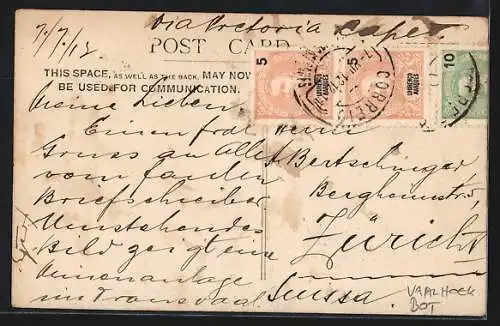 7/7/12
via Pretoria Cape
POST CARD
THIS SPACE, AS WELL AS THE BACK, MAY NOW
BE USED FOR COMMUNICATION.
Meine Lieben
Einen frohen
Gruss an Alle
vom faulen
Briefschreiber
Umstehendes
Bild zeigt eine
Minenanlage
in Transvaal.
Herrn
A. Bertschinger
Zürich
Suissa.
5
LOURENÇO
MARQUES
10
CORREIO
VAALHOEK
BOT